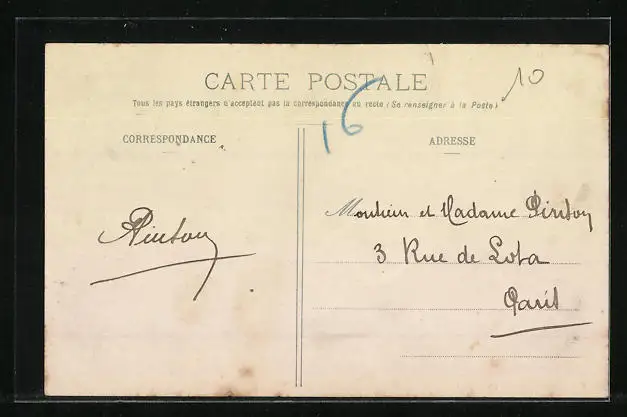 CARTE POSTALE
10
Tous les pays étrangers n'acceptent pas la correspondance au recto (Se renseigner à la Poste)
16
CORRESPONDANCE
ADRESSE
Monsieur et Madame Pinton
Pinton
3 Rue de Lota
Paris